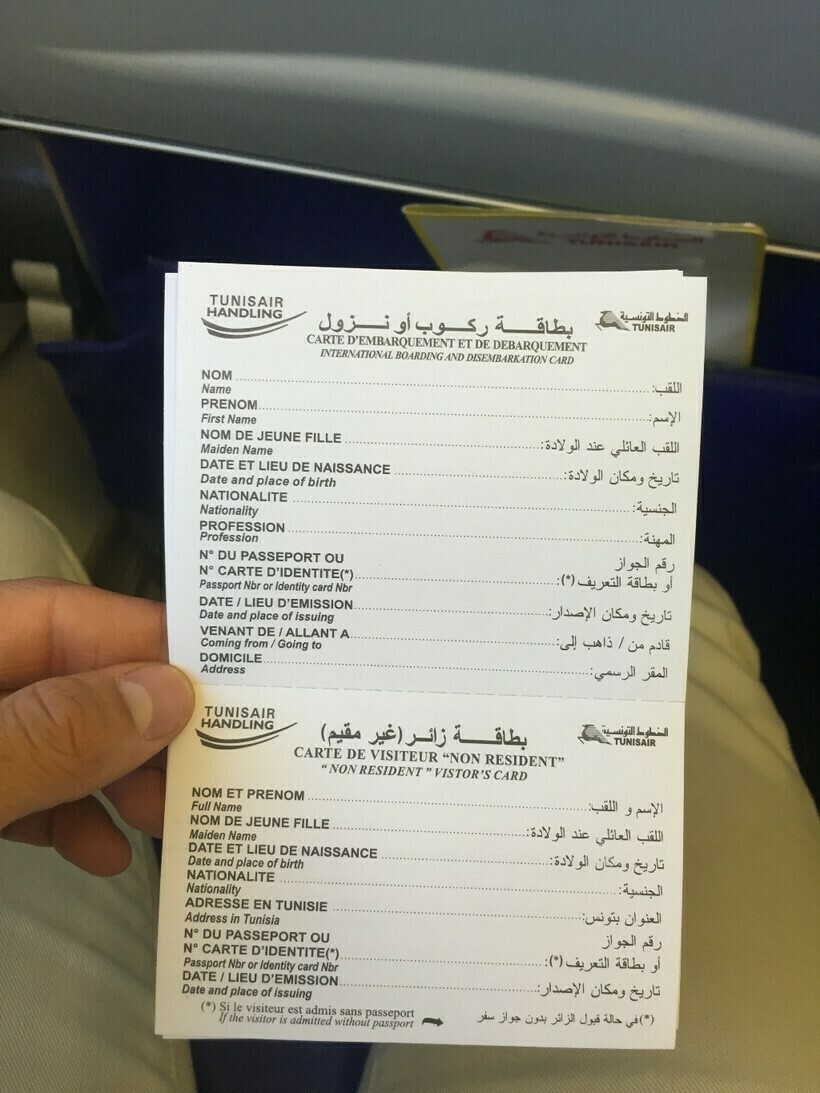 الخطوط التونسية
TUNISAIR
TUNISAIR
HANDLING
بطاقـــة ركـوب أو نـــزول
الخطوط التونسية
TUNISAIR
CARTE D'EMBARQUEMENT ET DE DEBARQUEMENT
INTERNATIONAL BOARDING AND DISEMBARKATION CARD
NOM اللقب:
Name
PRENOM الإسم:
First Name
NOM DE JEUNE FILLE اللقب العائلي عند الولادة:
Maiden Name
DATE ET LIEU DE NAISSANCE تاريخ ومكان الولادة:
Date and place of birth
NATIONALITE الجنسية:
Nationality
PROFESSION المهنة:
Profession
N° DU PASSEPORT OU رقم الجواز
N° CARTE D'IDENTITE(*) أو بطاقة التعريف(*):
Passport Nbr or Identity card Nbr
DATE / LIEU D'EMISSION تاريخ ومكان الإصدار:
Date and place of issuing
VENANT DE / ALLANT A قادم من / ذاهب إلى:
Coming from / Going to
DOMICILE المقر الرسمي:
Address
TUNISAIR
HANDLING
بطاقـــة زائـر (غير مقيم)
الخطوط التونسية
TUNISAIR
CARTE DE VISITEUR “NON RESIDENT”
“ NON RESIDENT ” VISTOR'S CARD
NOM ET PRENOM الإسم و اللقب:
Full Name
NOM DE JEUNE FILLE اللقب العائلي عند الولادة:
Maiden Name
DATE ET LIEU DE NAISSANCE تاريخ ومكان الولادة:
Date and place of birth
NATIONALITE الجنسية:
Nationality
ADRESSE EN TUNISIE العنوان بتونس:
Address in Tunisia
N° DU PASSEPORT OU رقم الجواز
N° CARTE D'IDENTITE(*) أو بطاقة التعريف(*):
Passport Nbr or Identity card Nbr
DATE / LIEU D'EMISSION تاريخ ومكان الإصدار:
Date and place of issuing
(*) Si le visiteur est admis sans passeport (*) في حالة قبول الزائر بدون جواز سفر
If the visitor is admitted without passport